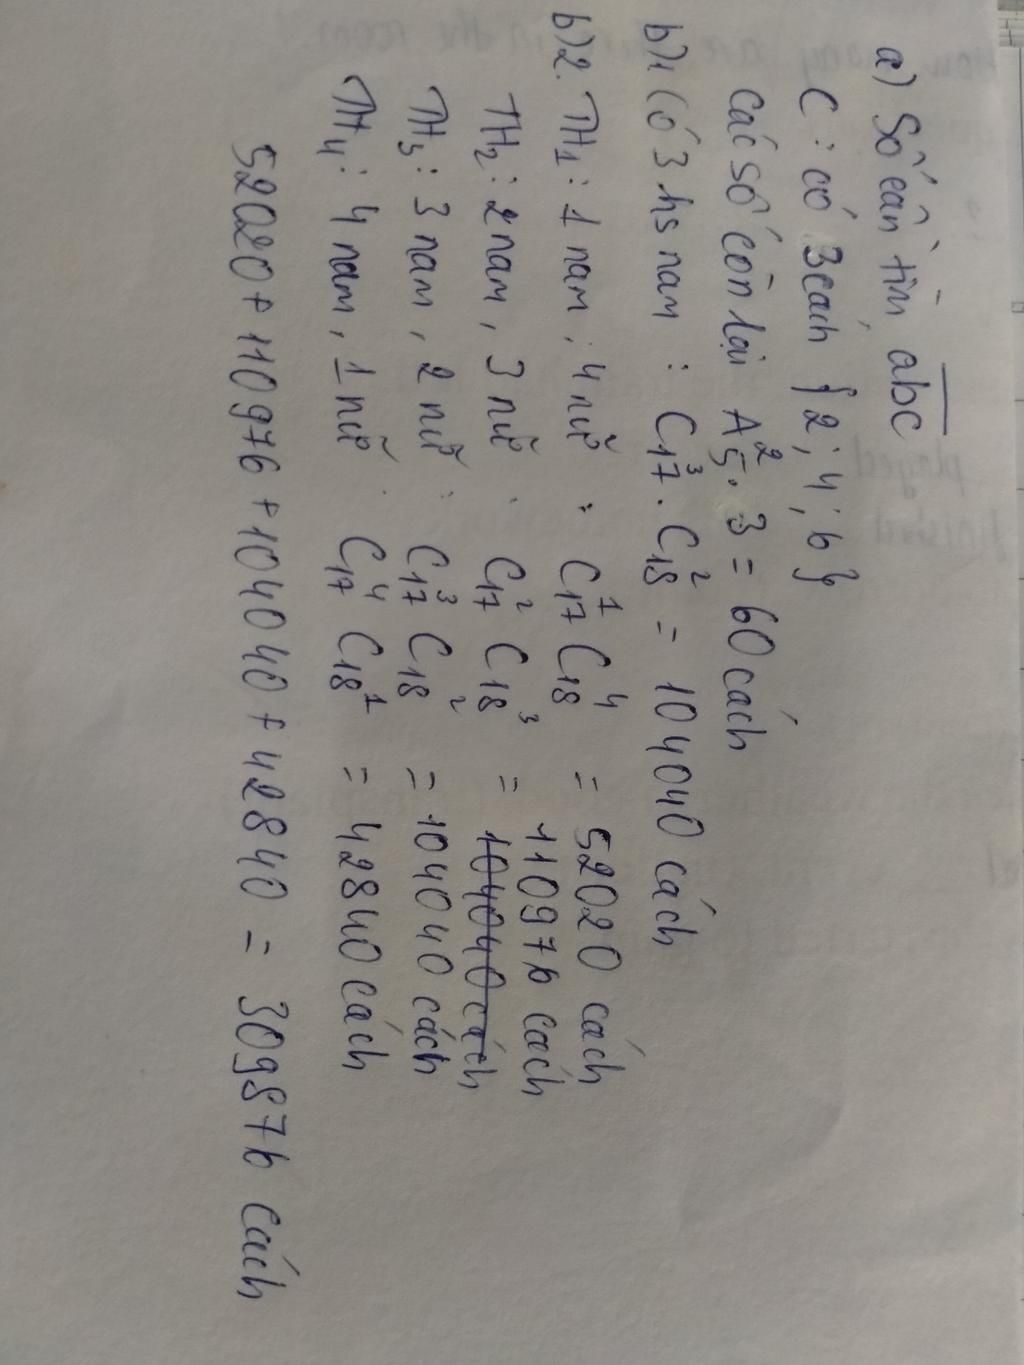 a) Số cần tìm abc
C : có 3 cách {2; 4; 6}
Các số còn lại A₅² . 3 = 60 cách
b)1 Có 3 hs nam : C₁₇³ . C₁₈² = 104040 cách
b)2. TH₁ : 1 nam , 4 nữ : C₁₇¹ C₁₈⁴ = 52020 cách
TH₂ : 2 nam , 3 nữ : C₁₇² C₁₈³ = 110976 cách
104040 cách
TH₃ : 3 nam , 2 nữ : C₁₇³ C₁₈² = 104040 cách
TH₄ : 4 nam , 1 nữ : C₁₇⁴ C₁₈¹ = 42840 cách
52020 + 110976 + 104040 + 42840 = 309876 cách